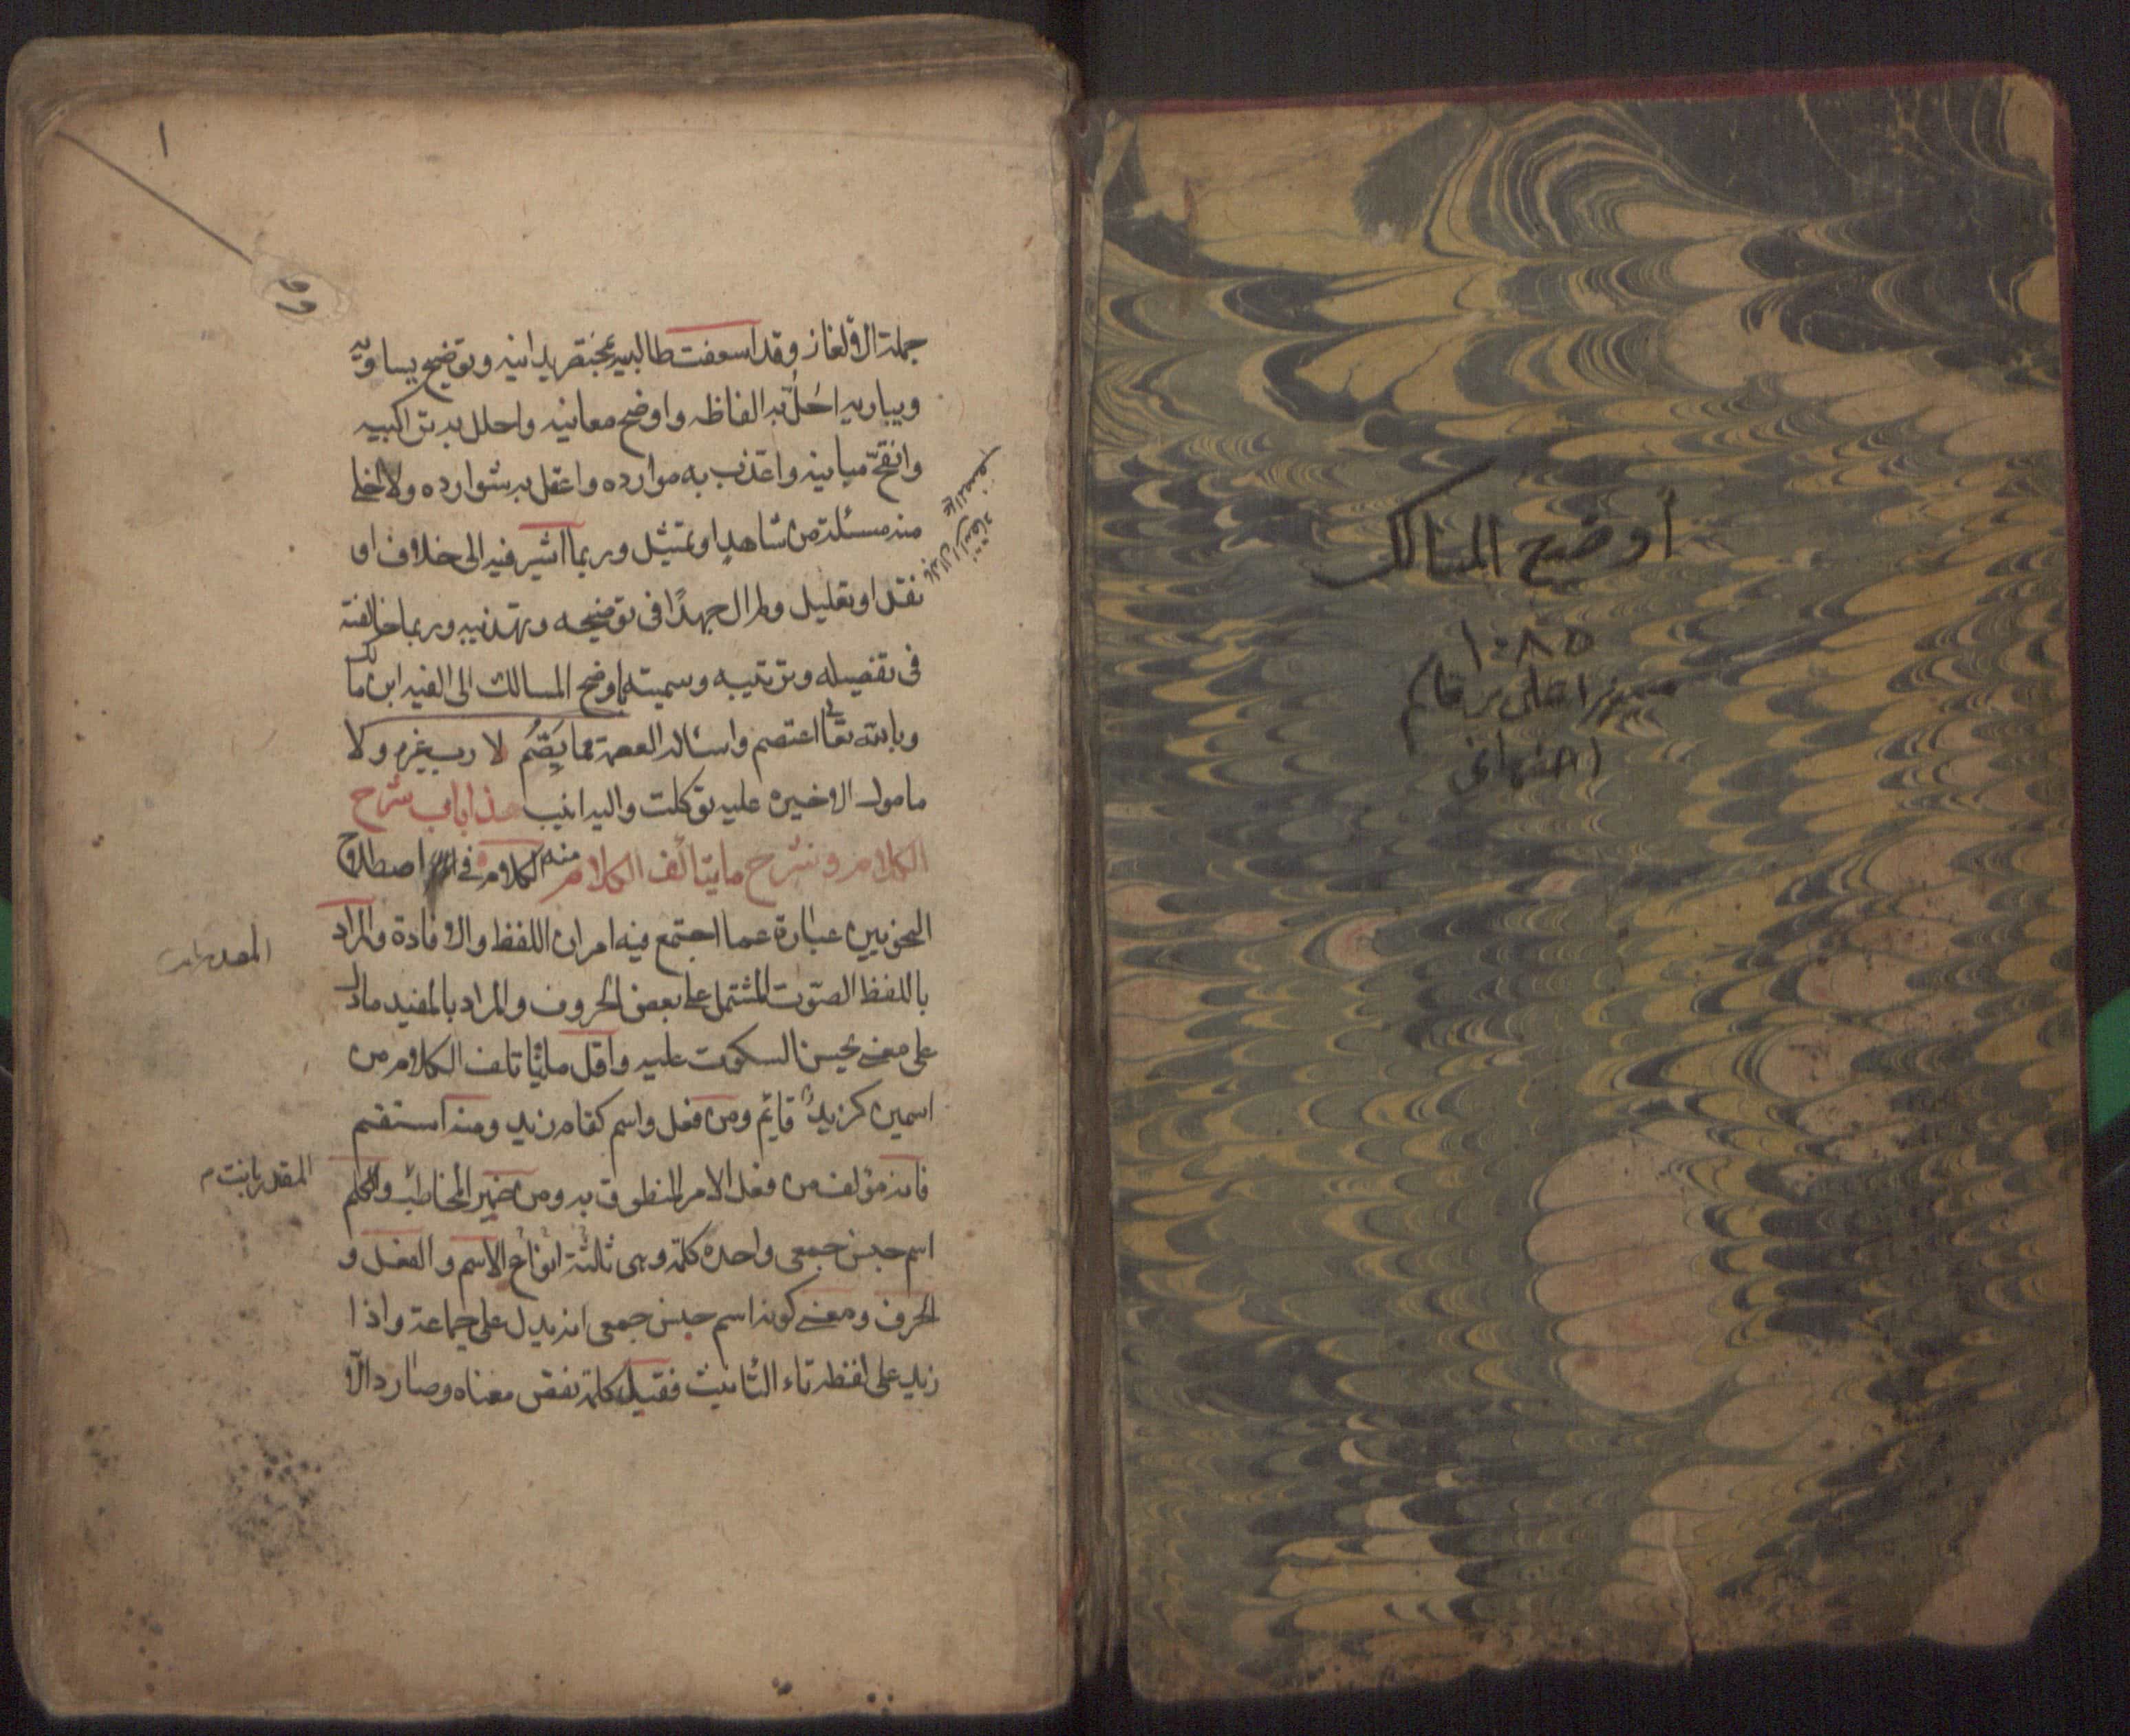 أوضح المسالك
١٠٨٥
ميرزا علي بن قاسم
اصفهاني
١
جملة الالغاز وقد اسعفت طالبيه بمختصر يدانيه وتوضيح يساويه
ويباريه احلّ به الفاظه واوضح معانيه واحلل به تراكبيه
وانقّح مبانيه واعذب به موارده واعقل به شوارده ولا اخلي
منه مسئلة من شاهد او تمثيل وربما اشير فيه الى خلاف او
نقد او تعليل ولم ال جهدًا في توضيحه وتهذيبه وربما خالفته
في تفصيله وترتيبه وسميته باوضح المسالك الى الفيه ابن مالك
وبالله تعالى اعتصم واسئاله العصمة مما يَصِم لا رب غيره ولا
مامول الا خيره عليه توكلت واليه انيب هذا باب شرح
الكلام وشرح ما يتألف الكلام منه الكلام في اصطلاح
النحويين عبارة عما اجتمع فيه امران اللفظ والافادة والمراد
باللفظ الصوت المشتمل على بعض الحروف والمراد بالمفيد ما دل
على معنى يحسن السكوت عليه واقل ما يتاتلف الكلام من
اسمين كزيدٌ قايم ومن فعل واسم كقام زيد ومنه استقم
فانه مؤلف من فعل الامر المنطوق به ومن ضمير المخاطب والكلم
المقدر بانت م
اسم جنس جمعي واحده كلمة وهي ثلثة انواع الاسم والفعل و
الحرف ومعنى كونه اسم جنس جمعي انه يدل على جماعة واذا
زيد على لفظه تاء التانيث فقيل كلمة نقص معناه وصار دالّا